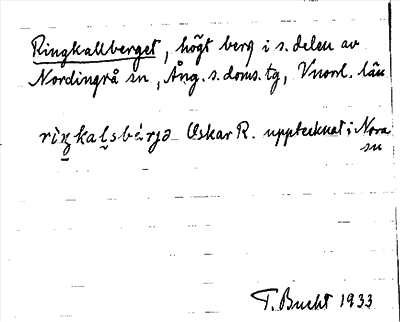 Ringkallberget, högt berg i s. delen av
Nordingrå sn, Ång. s. doms. tg, Vnorrl. län
riŋkaḷsbárjə Oskar R. upptecknat i Nora
sn
T. Bucht 1933